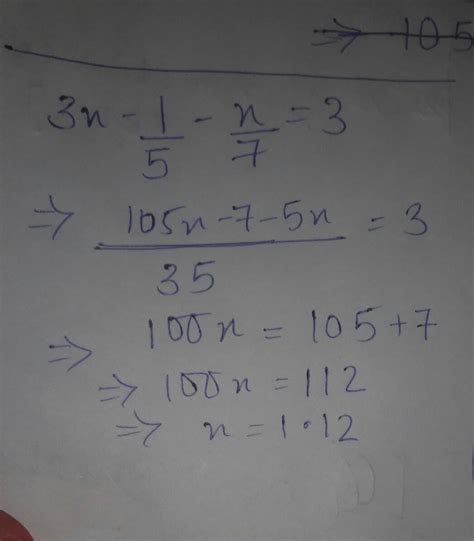 ⇒ 105
3x - 1/5 - x/7 = 3
⇒ 105x-7-5x/35 = 3
⇒ 100x = 105+7
⇒ 100x = 112
⇒ x = 1.12